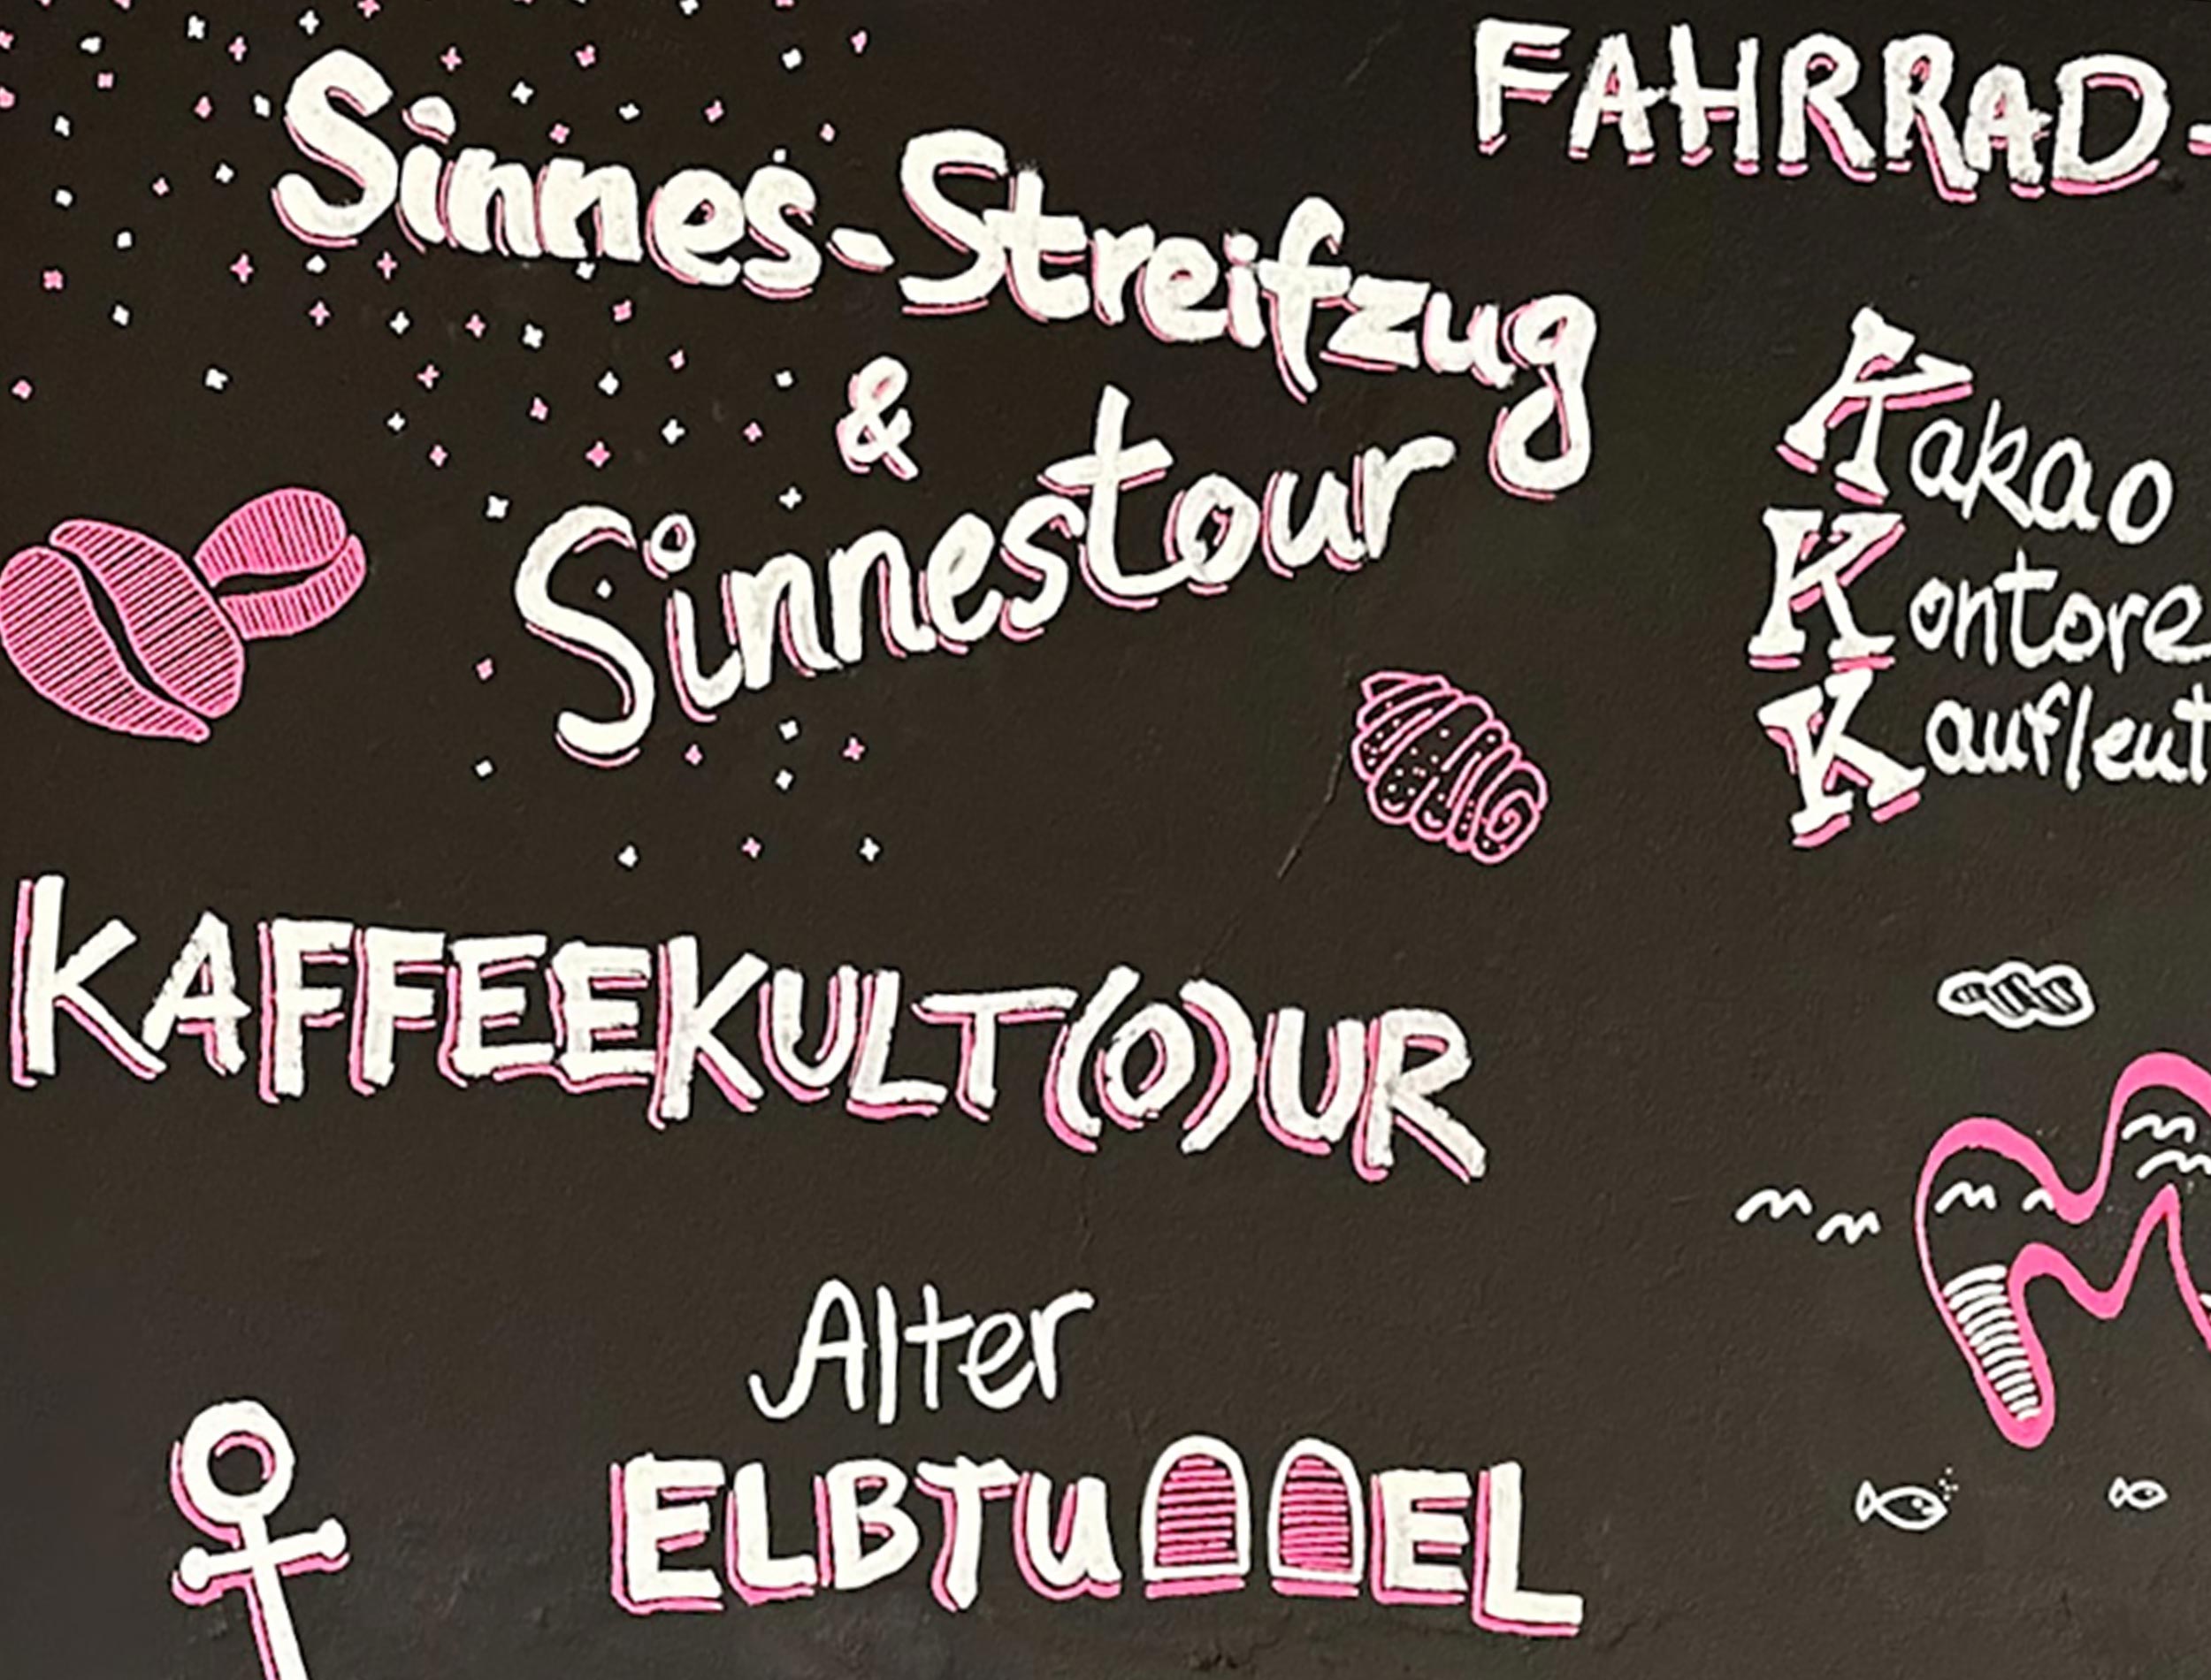 Sinnes-Streifzug
&
Sinnestour
KAFFEEKULT(O)UR
Alter
ELBTUNNEL
FAHRRAD-
Kakao
Kontore
Kaufleut